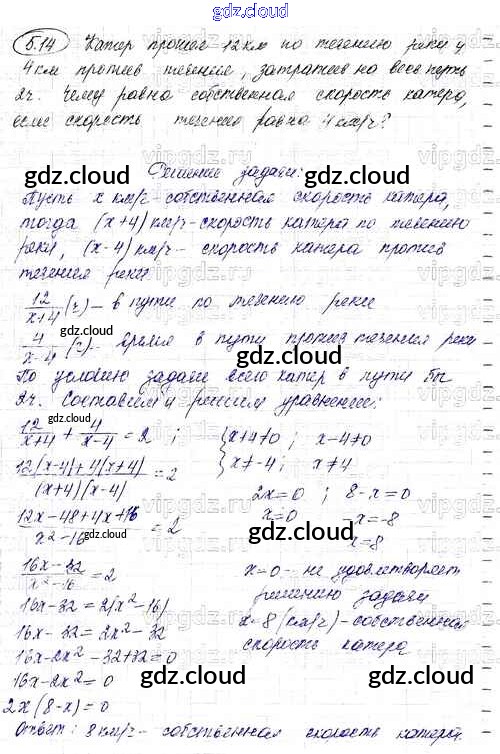 gdz.cloud
5.14 Катер прошел 12 км по течению реки и
4 км против течения, затратив на весь путь
2ч. Чему равна собственная скорость катера,
если скорость течения равна 4 км/ч?
Решение задачи:
Пусть x км/ч - собственная скорость катера,
тогда (x+4) км/ч - скорость катера по течению
реки, (x-4) км/ч - скорость катера против
течения реки
12/(x+4) (ч) - в пути по течению реки
4/(x-4) (ч) - время в пути против течения реки
По условию задачи всего катер в пути был
2ч. Составим и решим уравнение:
12/(x+4) + 4/(x-4) = 2 ; { x+4≠0 ; x-4≠0
x≠-4 ; x≠4
(12(x-4)+4(x+4))/((x+4)(x-4)) = 2
(12x-48+4x+16)/(x²-16) = 2
(16x-32)/(x²-16) = 2
16x-32=2(x²-16)
16x-32=2x²-32
16x-2x²-32+32=0
16x-2x²=0
2x(8-x)=0
2x=0 ; 8-x=0
x=0 -x=-8
x=8
x=0 - не удовлетворяет
решению задачи
x=8 (км/ч) - собственная
скорость катера
Ответ: 8 км/ч - собственная скорость катера.
gdz.cloud
gdz.cloud
gdz.cloud
gdz.cloud
gdz.cloud
gdz.cloud
gdz.cloud
gdz.cloud
gdz.cloud
gdz.cloud
gdz.cloud
gdz.cloud